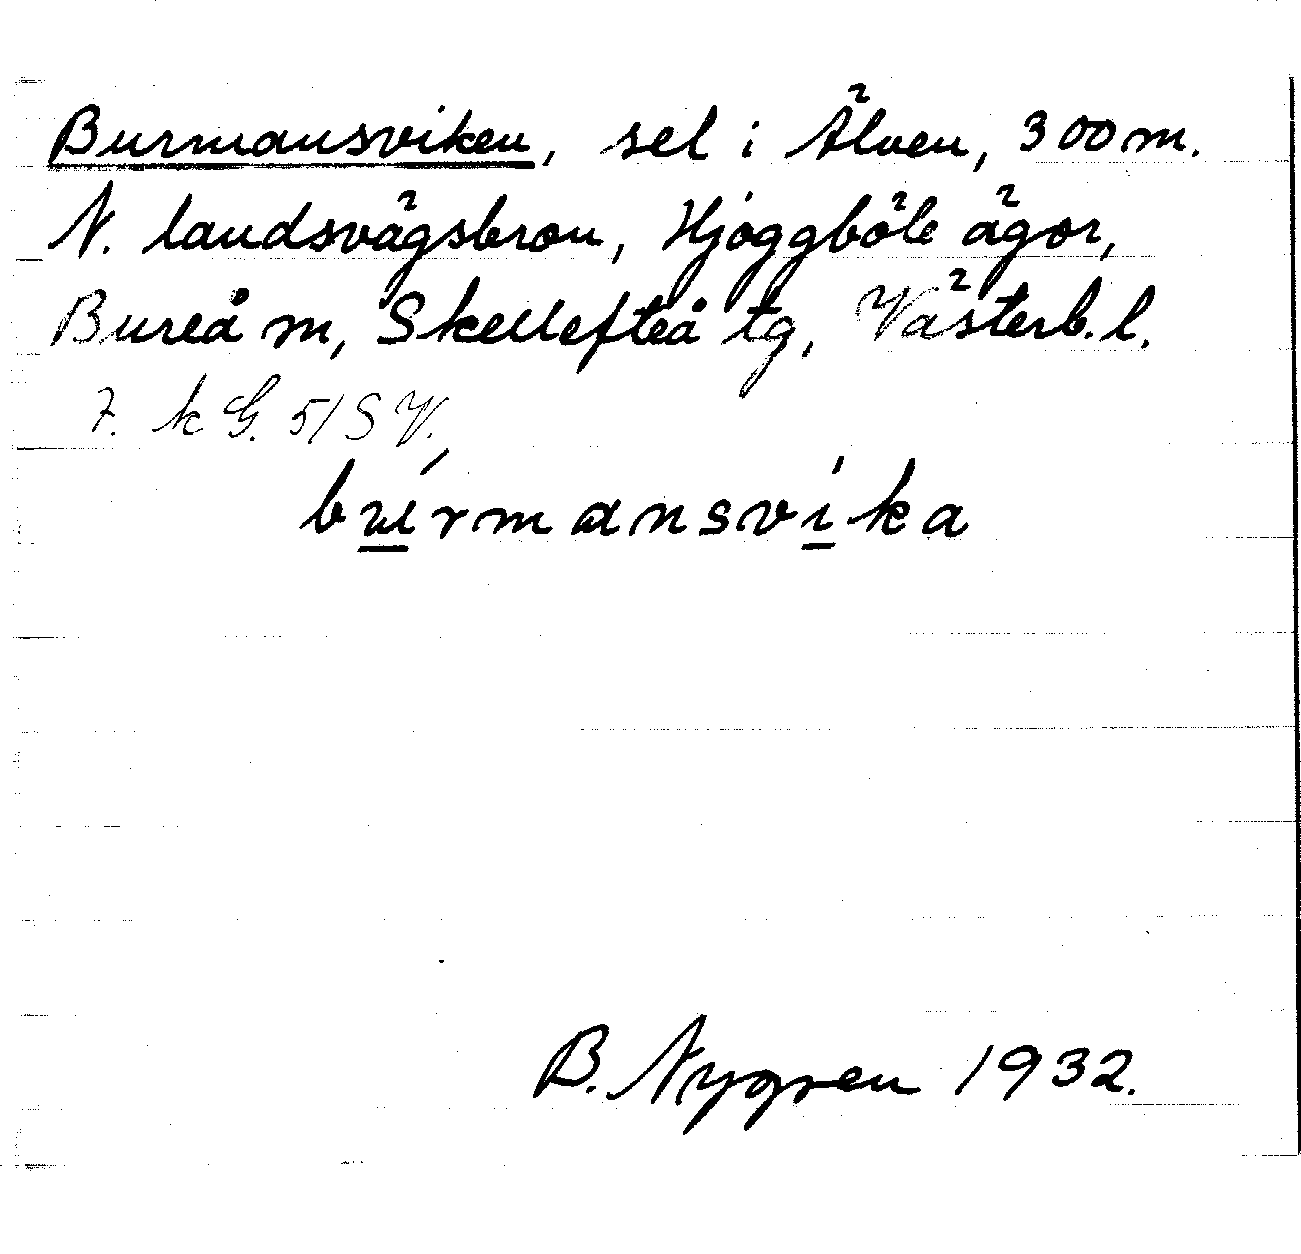 Burmansviken, sel i Älven, 300 m.
N. landsvägsbron, Hjoggböle ägor,
Bureå m, Skellefteå tg, Västerb. l.
7. k G. 51 S V.
búrmansvíka
B. Nygren 1932.